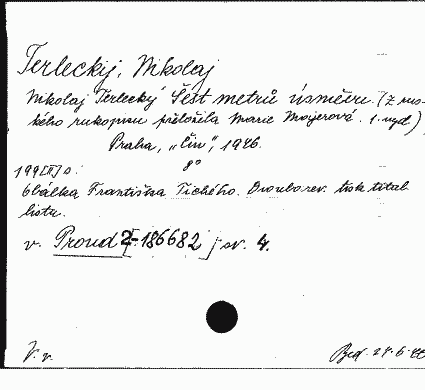 Terleckij, Nikolaj
Nikolaj Terlecký Šest metrů úsměvu. (Z rus-
kého rukopisu přeložila Marie Moijerová. 1. vyd)
Praha, „Čin", 1946.
8°
199[III] s.
Obálka Františka Tichého. Dvoubarev. tisk titul.
listu.
v. Proud [2-186682] sv. 4.
V. v.